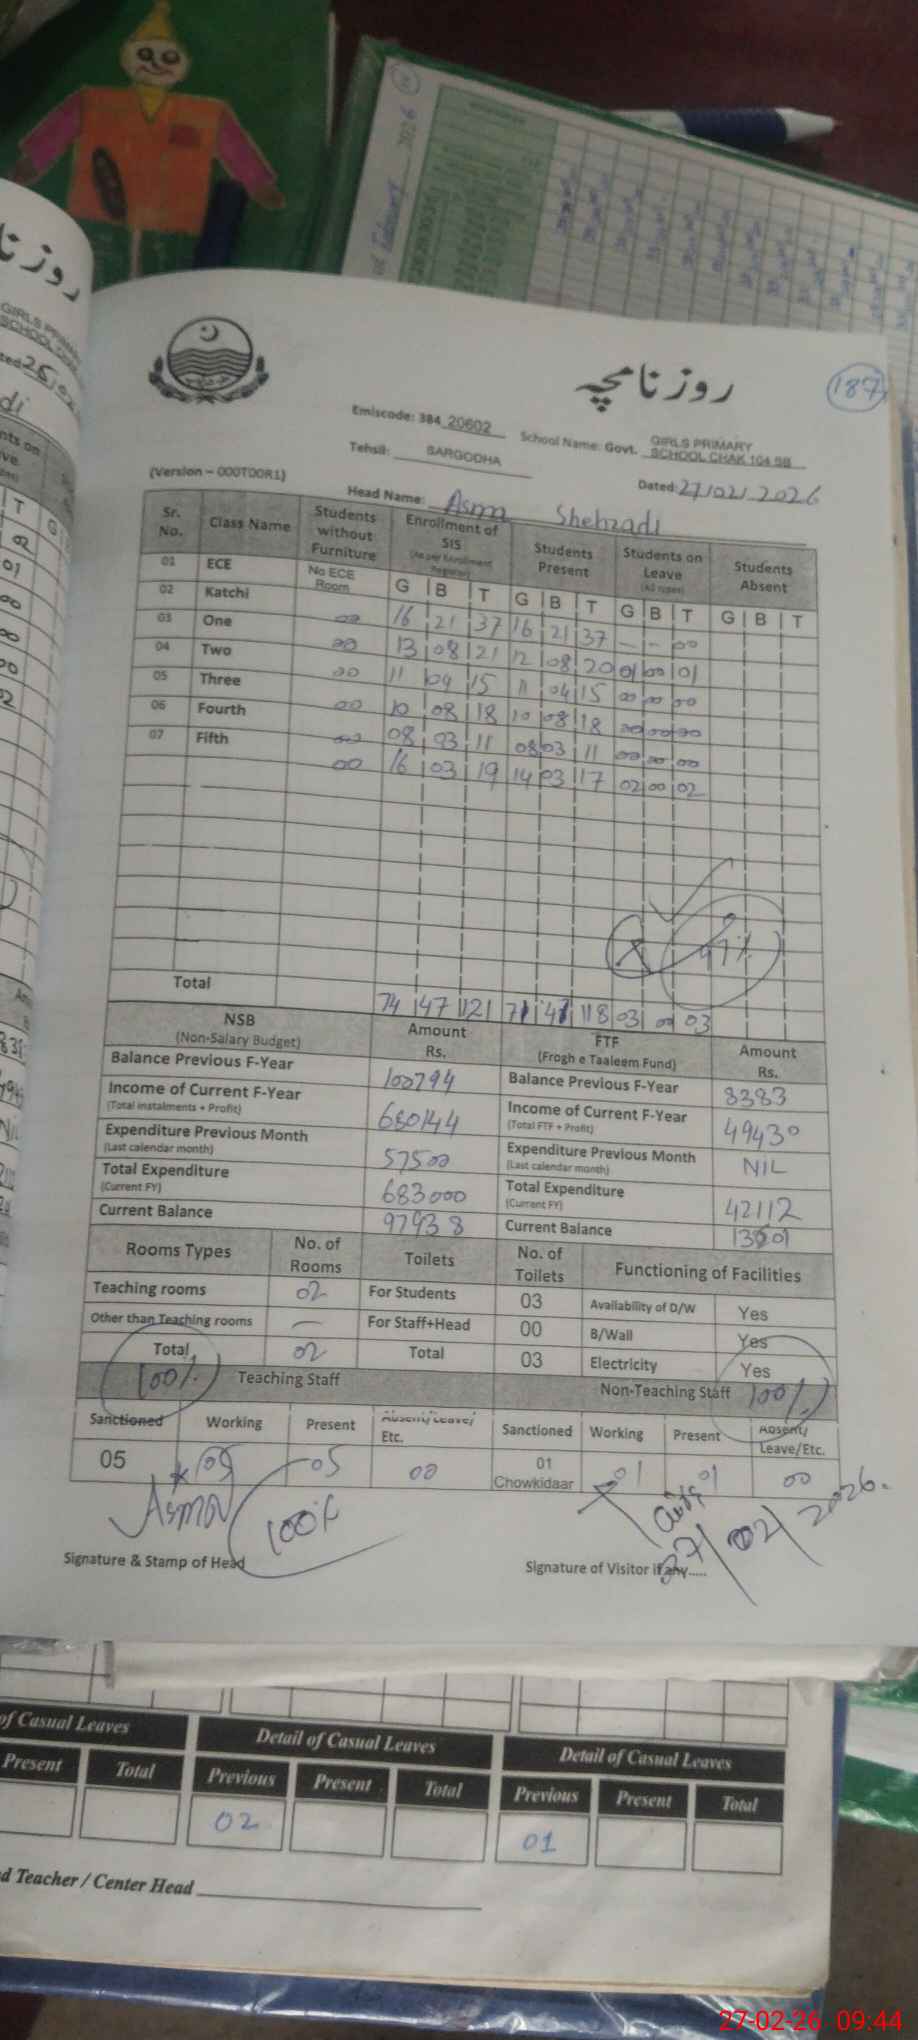 روزنامچہ
187
Emiscode: 384 20602
School Name: Govt. GIRLS PRIMARY SCHOOL CHAK 104 SB
Tehsil: SARGODHA
(Version – 000T00R1)
Dated: 27/02/2026
Head Name: Asma Shehzadi
Sr. No. Class Name Students without Furniture Enrollment of SIS (As per Enrollment Register) Students Present Students on Leave (All types) Students Absent
G B T G B T G B T G B T
01 ECE No ECE Room
02 Katchi 00 16 21 37 16 21 37 – – 00
03 One 00 13 08 21 12 08 20 01 00 01
04 Two 00 11 04 15 11 04 15 00 00 00
05 Three 00 10 08 18 10 08 18 00 00 00
06 Fourth 00 08 03 11 08 03 11 00 00 00
07 Fifth 00 16 03 19 14 03 17 02 00 02
97%
Total 74 47 121 71 47 118 03 00 03
NSB (Non-Salary Budget) Amount Rs. FTF (Frogh e Taaleem Fund) Amount Rs.
Balance Previous F-Year 100794 Balance Previous F-Year 8383
Income of Current F-Year (Total instalments + Profit) 680144 Income of Current F-Year (Total FTF + Profit) 49430
Expenditure Previous Month (Last calendar month) 57500 Expenditure Previous Month (Last calendar month) NIL
Total Expenditure (Current FY) 683000 Total Expenditure (Current FY) 42112
Current Balance 97938 Current Balance
Rooms Types No. of Rooms Toilets No. of Toilets Functioning of Facilities
Teaching rooms 02 For Students 03 Availability of D/W Yes
Other than Teaching rooms — For Staff+Head 00 B/Wall Yes
Total 02 Total 03 Electricity Yes
100% Teaching Staff Non-Teaching Staff 100%
Sanctioned Working Present Absent/Leave/ Etc. Sanctioned Working Present Absent/ Leave/Etc.
05 05 05 00 01 Chowkidaar 01 01 00
Asma 100%
27/02/2026.
Signature & Stamp of Head Signature of Visitor if any.....
of Casual Leaves Detail of Casual Leaves Detail of Casual Leaves
Present Total Previous Present Total Previous Present Total
02 01
d Teacher / Center Head
27-02-26 09:44